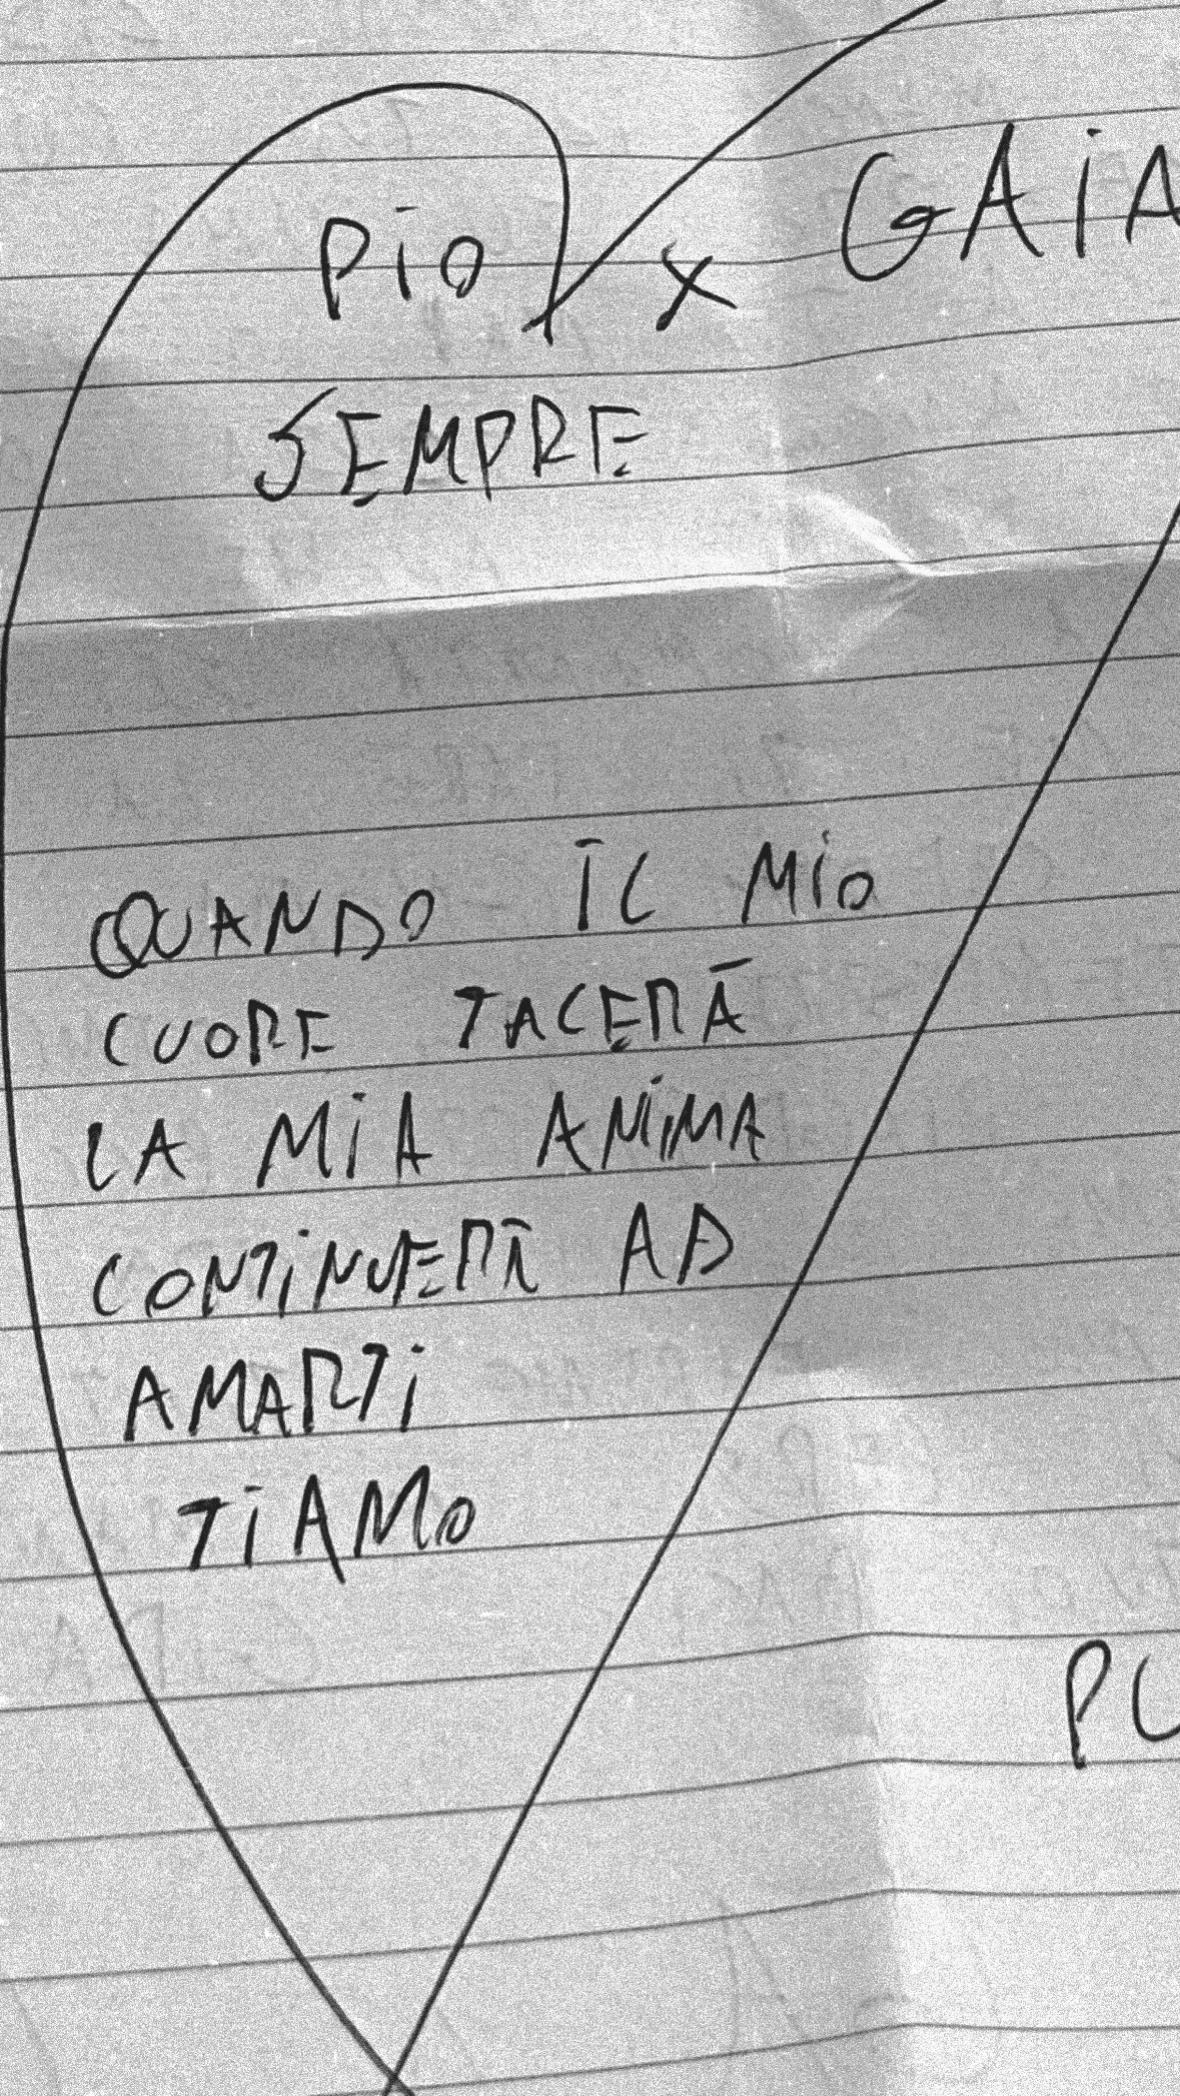 PIO x GAIA
SEMPRE
QUANDO IL MIO
CUORE TACERÀ
LA MIA ANIMA
CONTINUERÀ AD
AMARTI
TI AMO